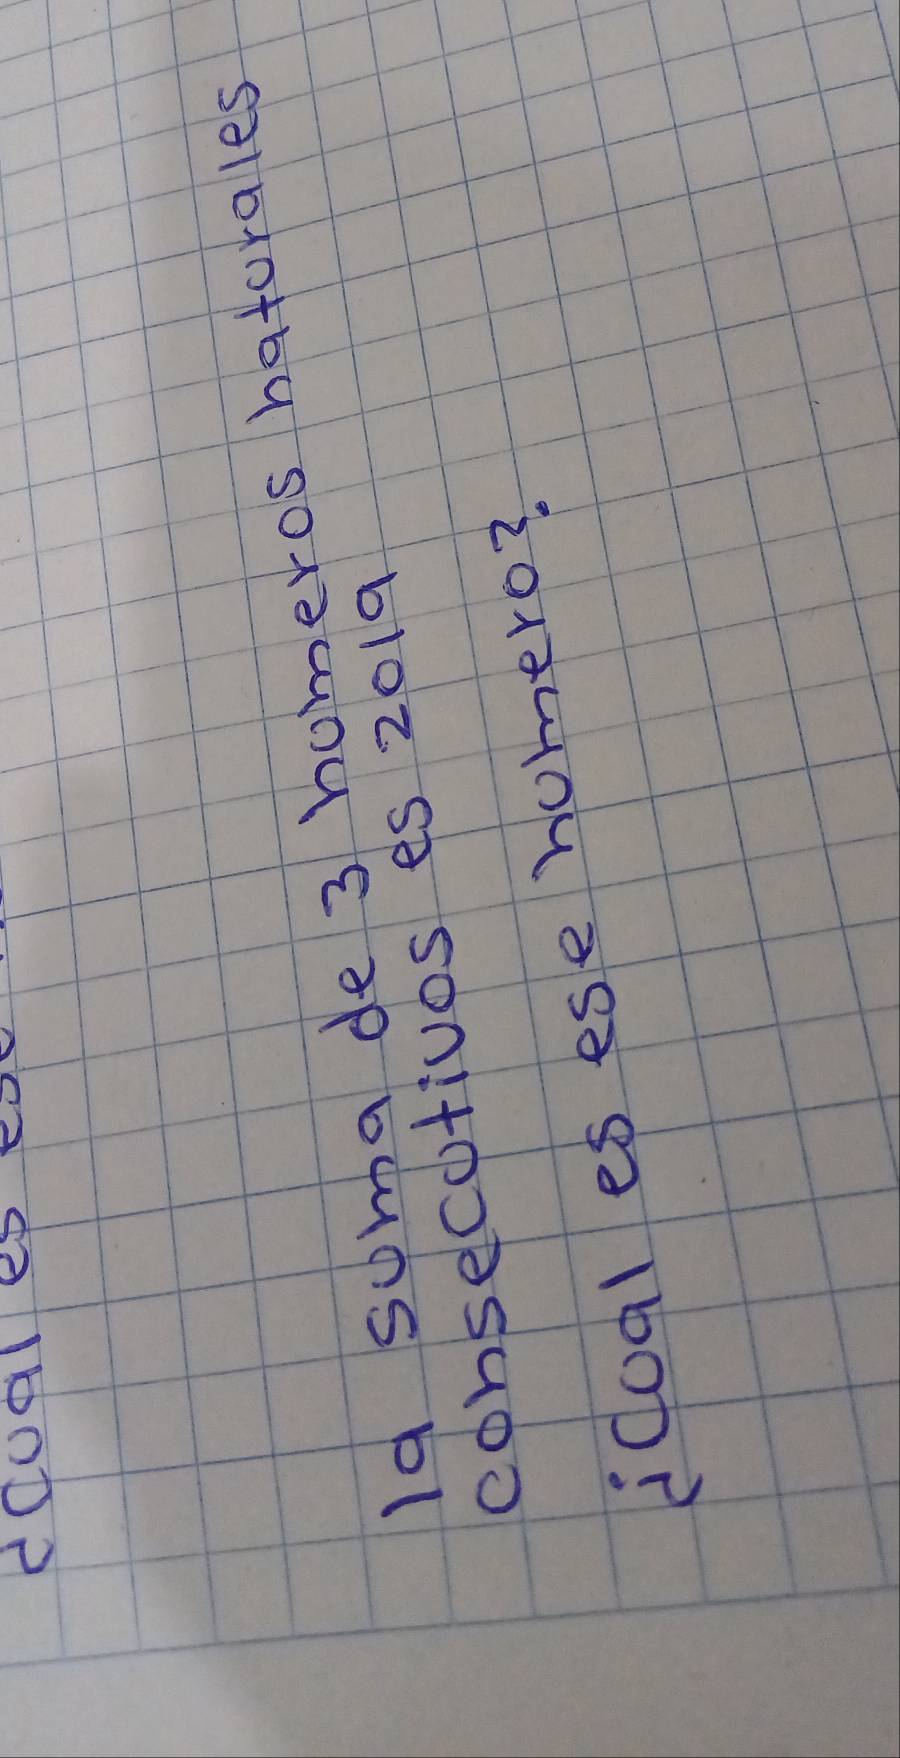 ¿Cual es ese
la suma de 3 numeros naturales
consecutivos es 2019
¿Cual es ese numero?